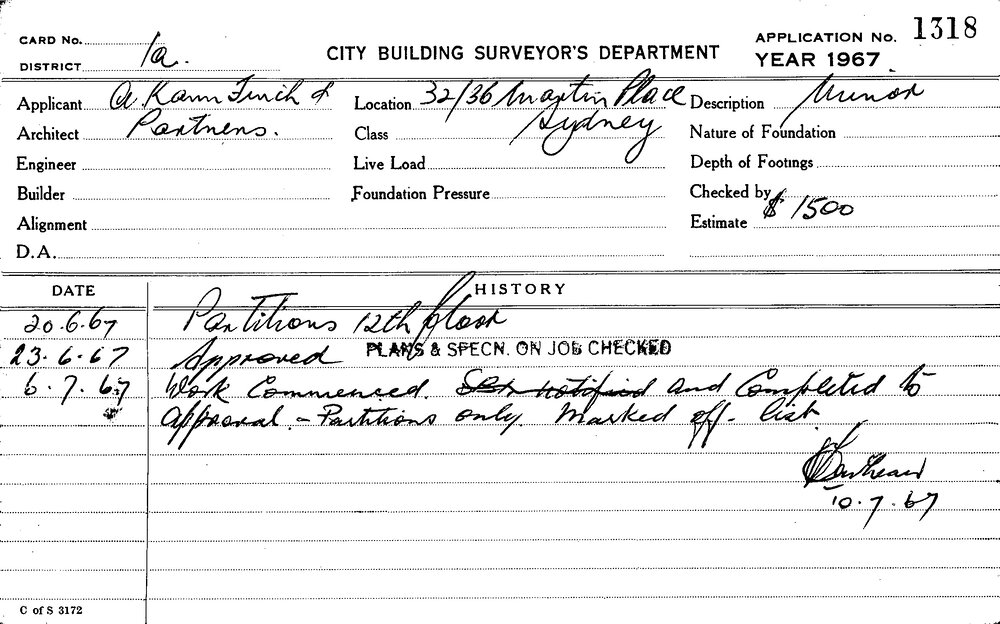 CARD No.
DISTRICT 1a.
CITY BUILDING SURVEYOR'S DEPARTMENT
APPLICATION No. 1318
YEAR 1967
Applicant A. Kann Finch &
Architect Partners.
Engineer
Builder
Alignment
D.A.
Location 32/36 Martin Place
Class Sydney
Live Load
Foundation Pressure
Description Minor
Nature of Foundation
Depth of Footings
Checked by
Estimate $ 1500
DATE HISTORY
20.6.67 Partitions 12th floor
23.6.67 Approved PLANS & SPECN. ON JOB CHECKED
6.7.67 Work Commenced. notified and Completed to
approval. - Partitions only. Marked off list.
10.7.67
C of S 3172